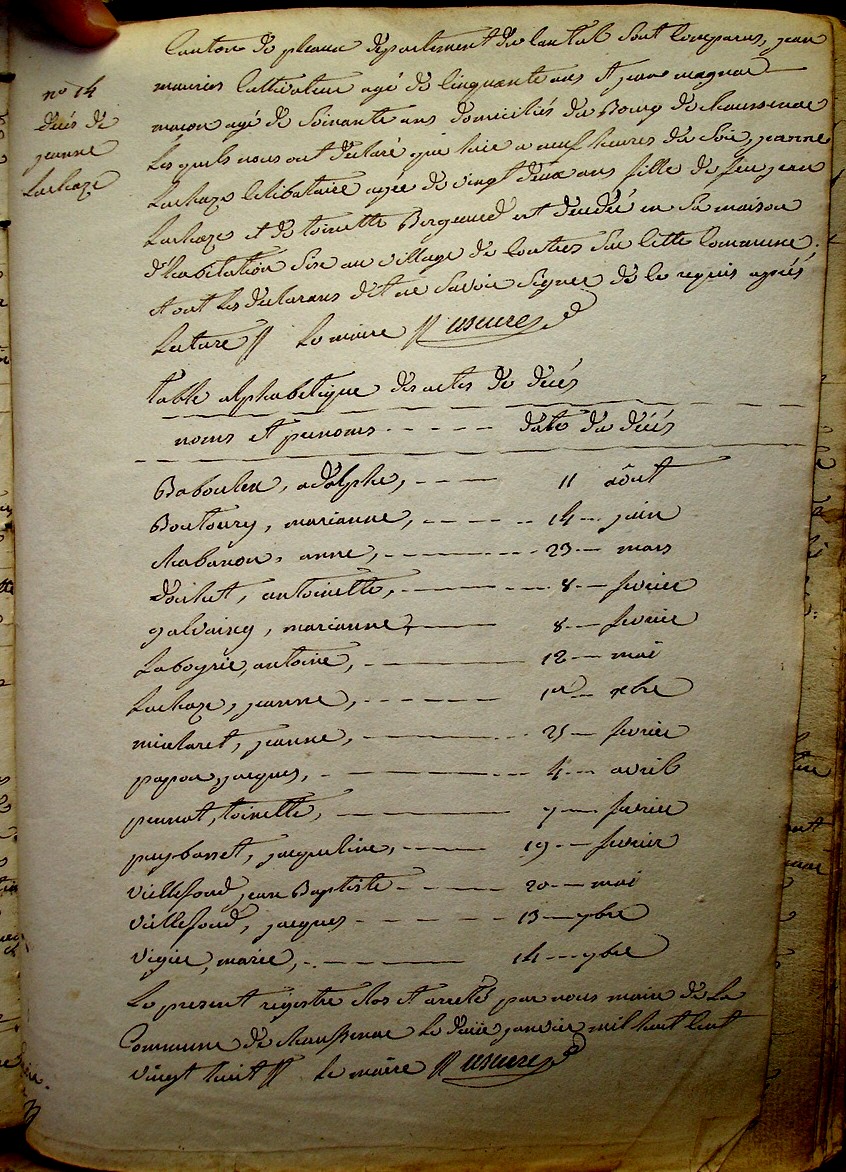 Canton de pleaux departement du Cantal sont Comparus, jean
no 14
décés de
jeanne
Lachaze
mauries Cultivateur agé de Cinquante ans et jean magnac
macon agé de Soixante ans domiciliés du Bourg de chaussenac
Les quels nous ont déclaré que hier a neuf heures du Soir, jeanne
Lachaze Celibataire agée de vingt deux ans fille de feu jean
Lachaze et de toinette Bergeaud est décédée en Sa maison
d'habitation Sise au village de Contres Sur Cette Commune.
et ont Les déclarans dit ne Savoir Signer de Ce requis aprés
Lecture // Le maire
table alphabetique des actes de décés
noms et prenoms - - - - - date du décés
Baboulen, adolphe, - - 11 août
Boutoury, marianne, - - 14 - juin
chabanon, anne, - - 23 - mars
antoinette, - - 8 - fevrier
galvaing, marianne, - 8 - fevrier
Laboyrie, antoine, - - 12 - mai
Lachaze, jeanne, - - 1er - xbre
mialaret, jeanne, - - 25 - fevrier
papon, jacques, - - 4 - avril
toinette, - 7 - fevrier
puybasset, jacqueline, - 19 - fevrier
Viellefond, jean Baptiste - - 20 - mai
Viellefond, jacques - - 13 - 7bre
Vigier, marie, - - 14 - 7bre
Le present régistre Clos et arreté par nous maire de La
Commune de chaussenac Le janvier mil huit Cent
vingt huit // Le maire